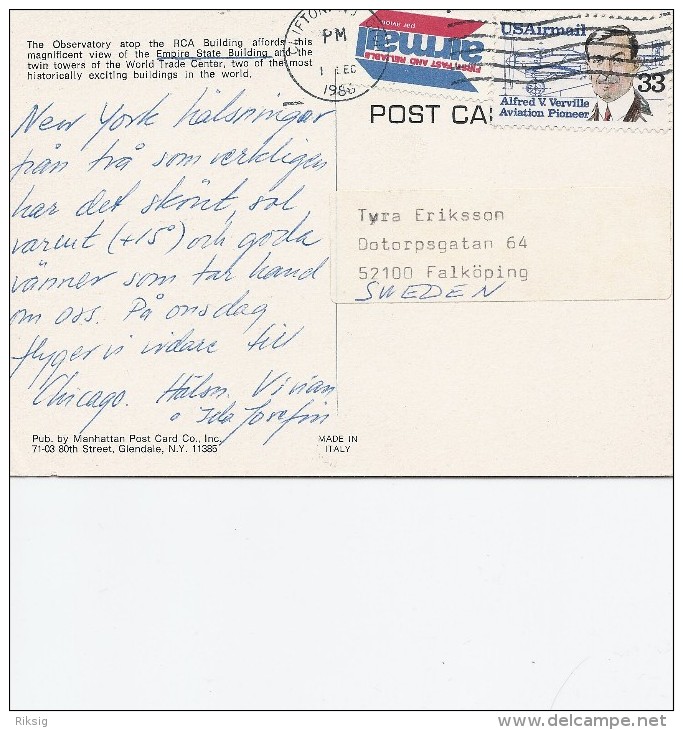 The Observatory atop the RCA Building affords this
magnificent view of the Empire State Building and the
twin towers of the World Trade Center, two of the most
historically exciting buildings in the world.
New York hälsningar
från två som verkligen
har det skönt, sol
varmt (+15°) och goda
vänner som tar hand
om oss. På onsdag
flyger vi vidare till
Chicago. Hälsn. Vivian
o Ida Josefin
Pub. by Manhattan Post Card Co., Inc.
71-03 80th Street, Glendale, N.Y. 11385
MADE IN
ITALY
PM
DEC
1986
airmail
par avion
FIRST FAST AND RELIABLE
USAirmail
33
Alfred V. Verville
Aviation Pioneer
POST CA
Tyra Eriksson
Dotorpsgatan 64
52100 Falköping
SWEDEN
Riksig
www.delcampe.net